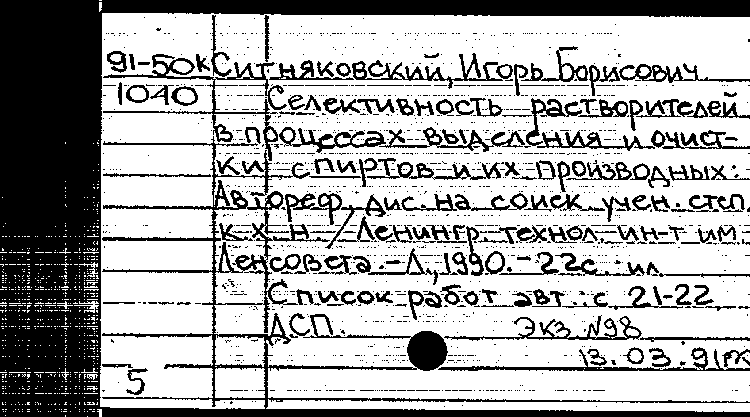 91-50к Ситняковский, Игорь Борисович
1040 Селективность растворителей
в процессах выделения и очист-
ки спиртов и их производных:
Автореф. дис. на соиск. учен. степ.
к. х. н. / Ленингр. технол. ин-т им.
Ленсовета. - Л., 1990. - 22с. : ил.
Список работ авт.: с. 21-22.
ДСП. Экз. №98
13.03.91
5